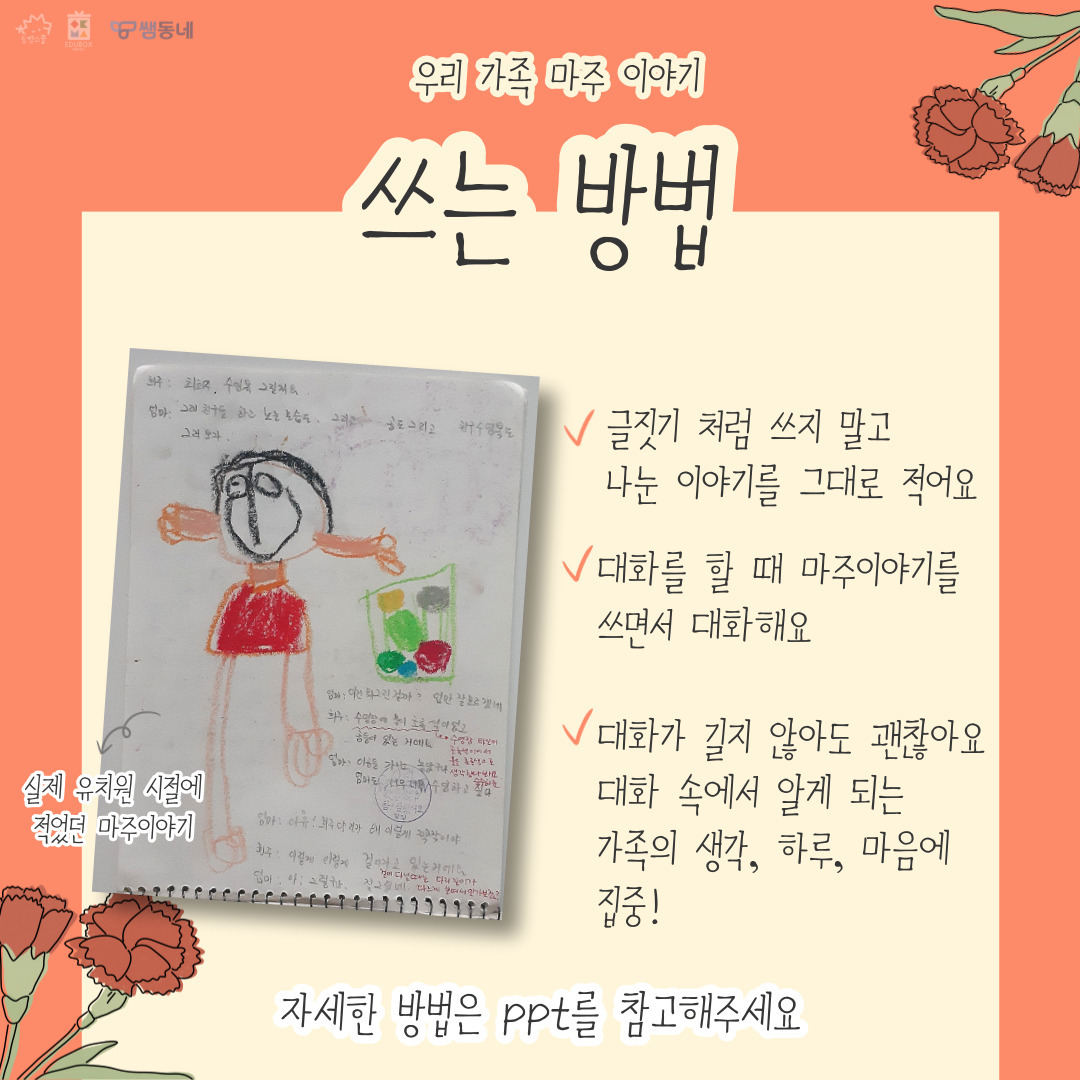 EDUBOX
쌤동네
우리 가족 마주 이야기
쓰는 방법
희주: 수영복 그릴거예요
엄마: 그려
그려 보자.
글짓기 처럼 쓰지 말고
나눈 이야기를 그대로 적어요
대화를 할 때 마주이야기를
쓰면서 대화해요
대화가 길지 않아도 괜찮아요
대화 속에서 알게 되는
가족의 생각, 하루, 마음에
집중!
엄마:
희주: 수영장에
공들이 있는 거예요
엄마:
엄마도 수영하고 싶다
실제 유치원 시절에
적었던 마주이야기
엄마: 아유! 희주 다리가 왜 이렇게
희주: 이렇게 이렇게 걸어가고 있는거예요
엄마: 아! 그렇구나.
자세한 방법은 ppt를 참고해주세요